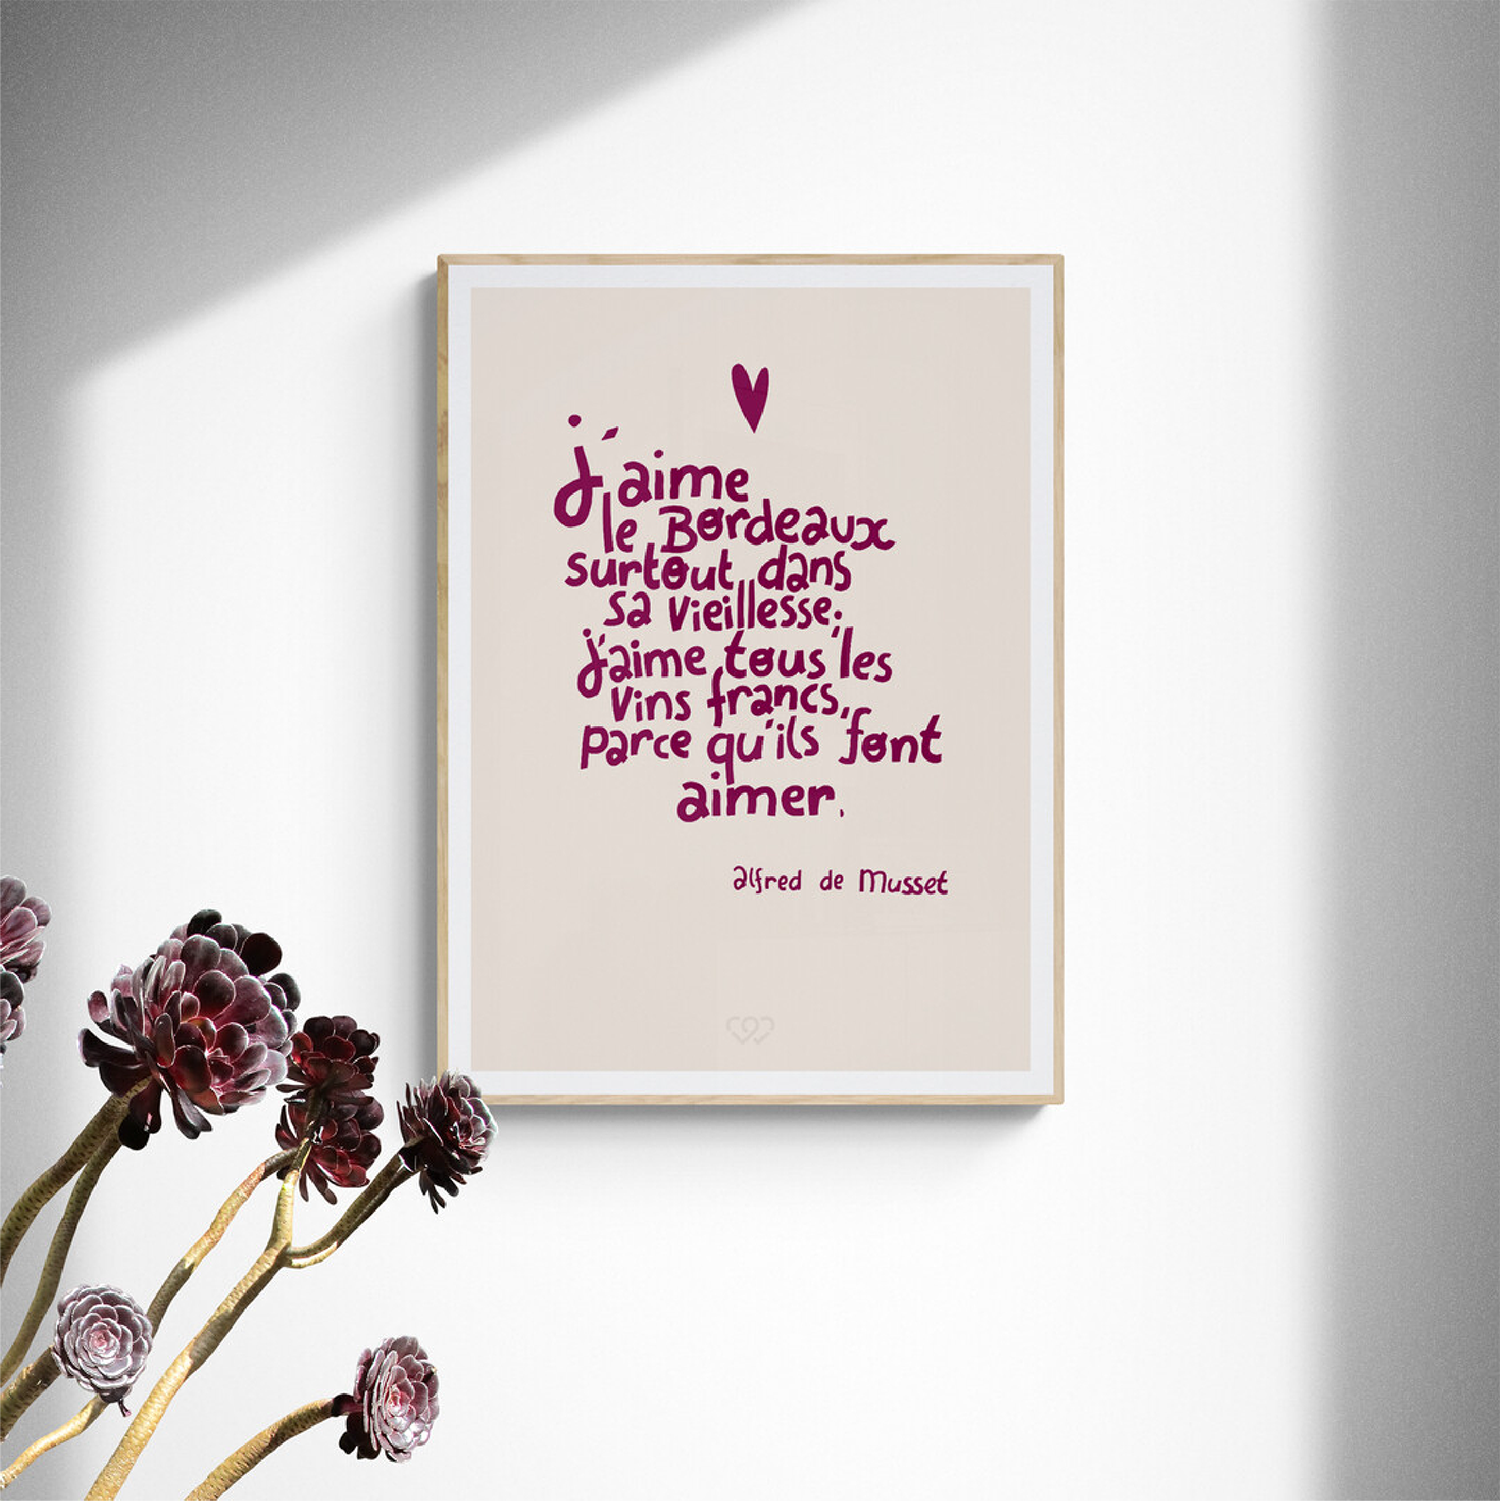 j'aime
le Bordeaux
surtout dans
sa vieillesse;
j'aime tous les
vins francs,
parce qu'ils font
aimer.
alfred de Musset